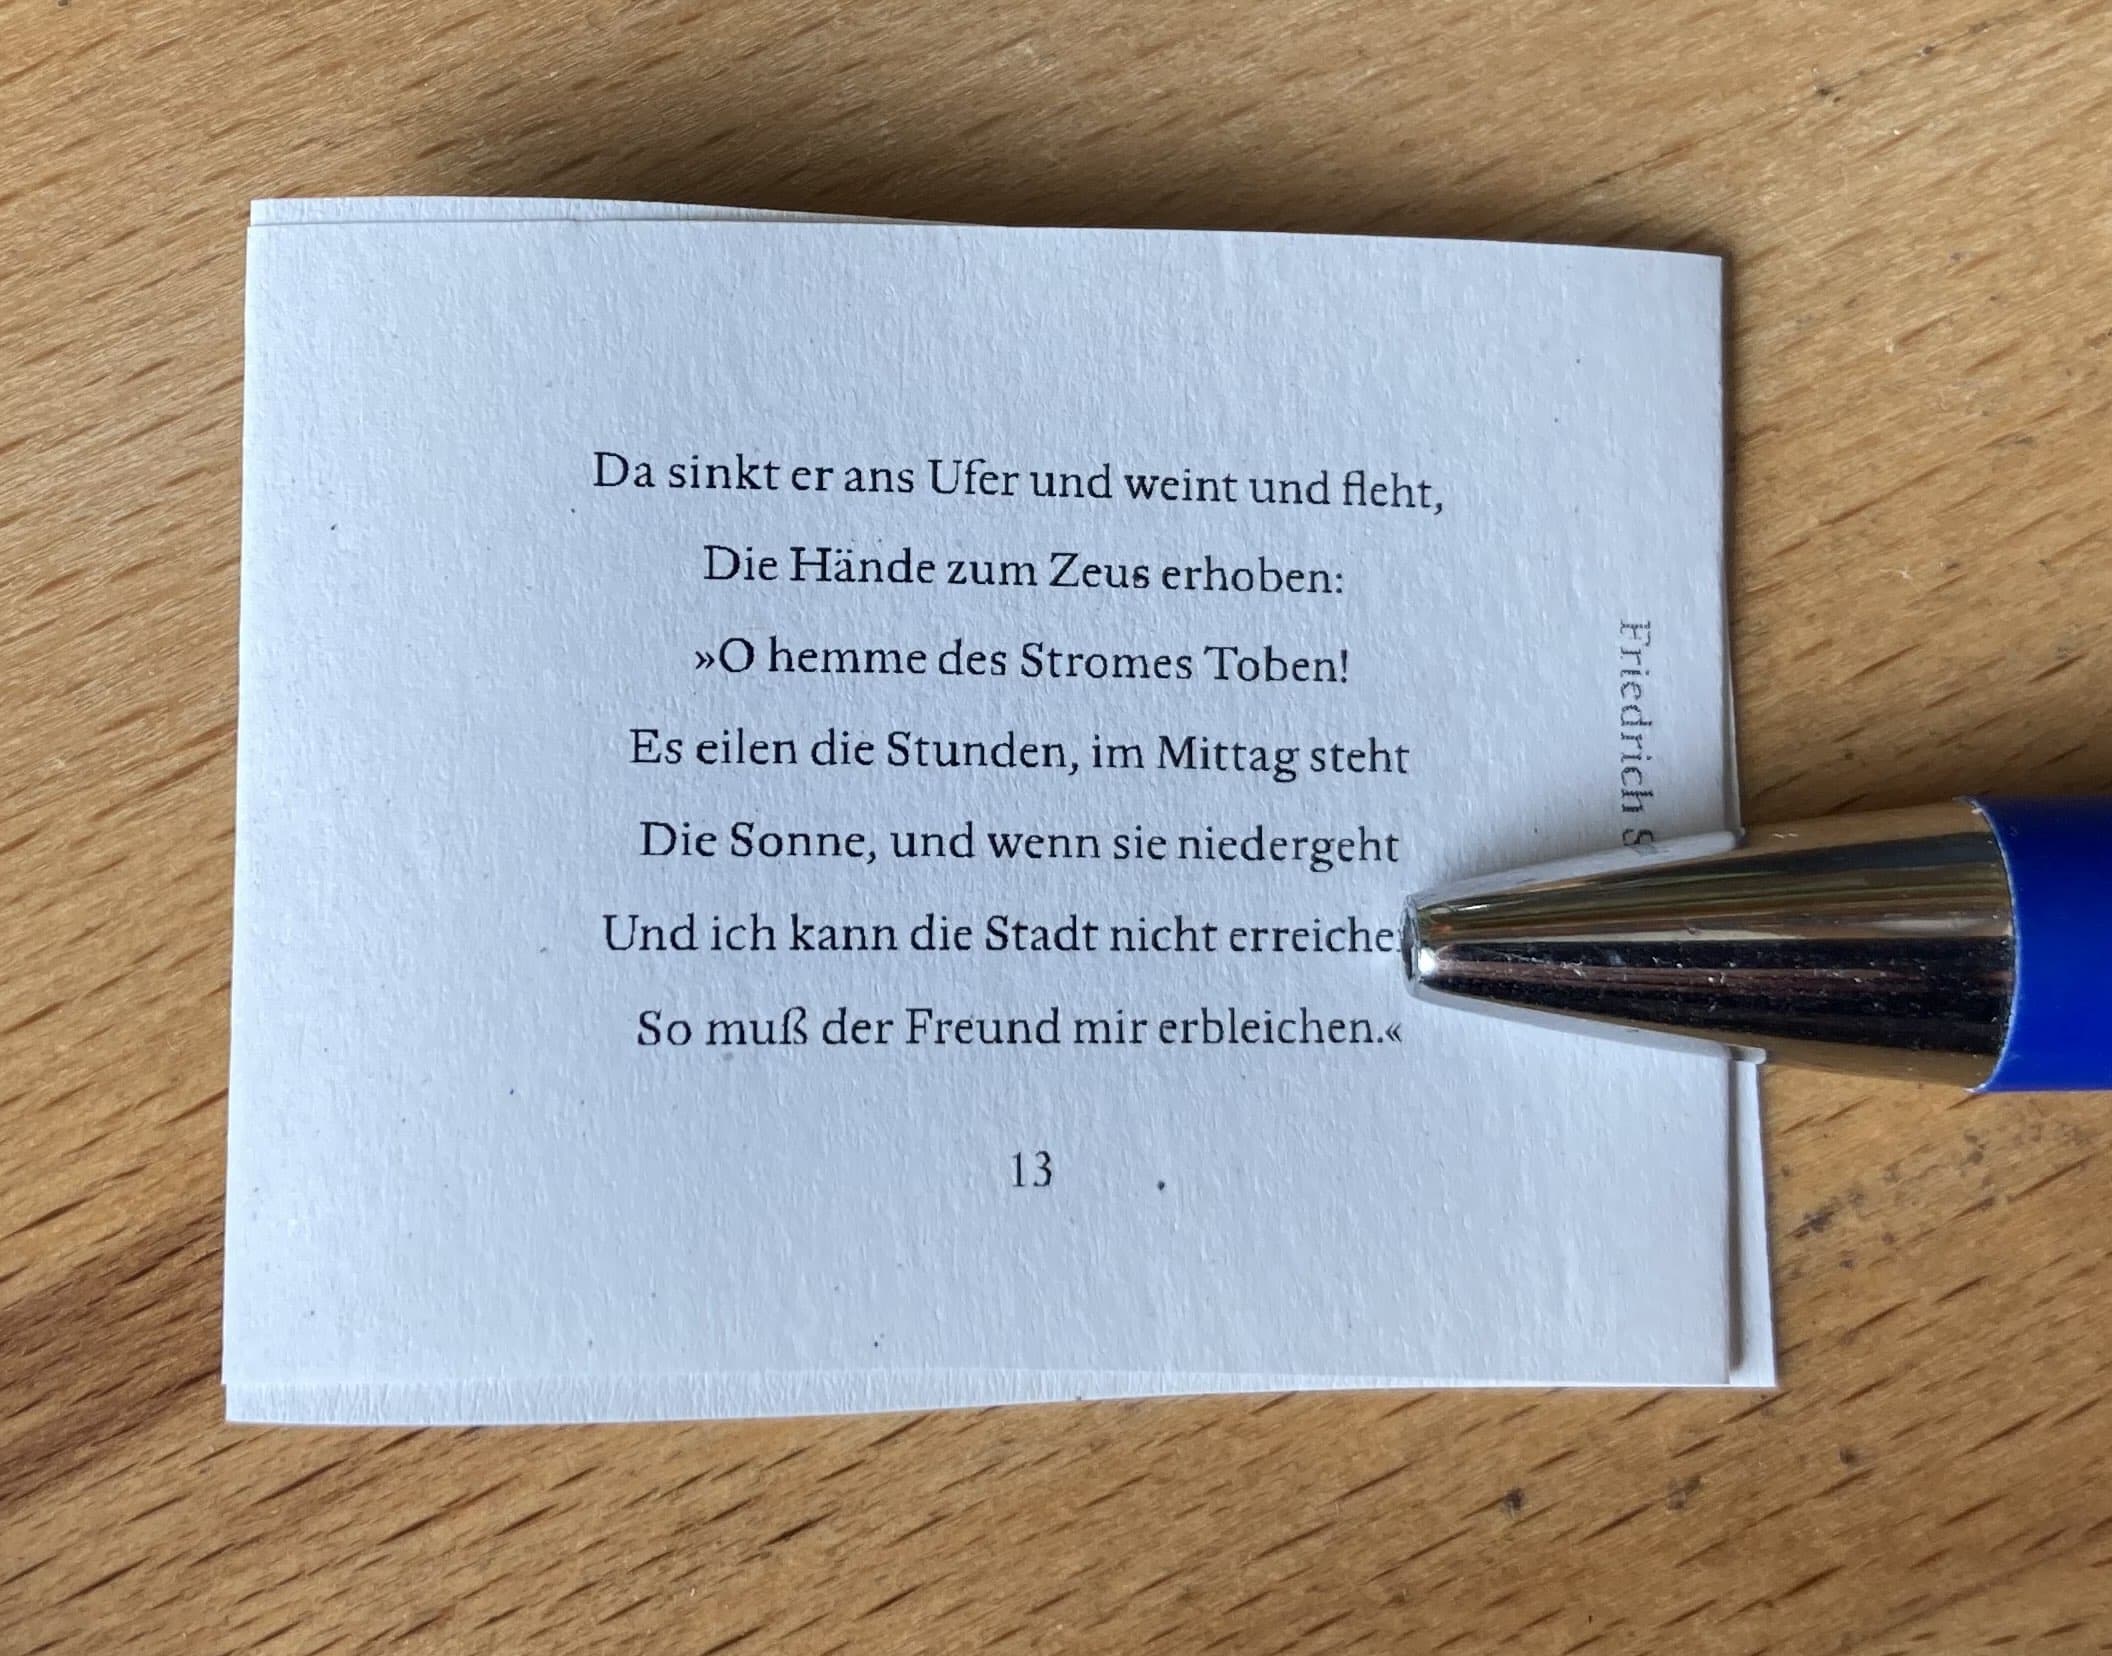 Da sinkt er ans Ufer und weint und fleht,
Die Hände zum Zeus erhoben:
»O hemme des Stromes Toben!
Es eilen die Stunden, im Mittag steht
Die Sonne, und wenn sie niedergeht
Und ich kann die Stadt nicht erreiche
So muß der Freund mir erbleichen.«
13
Friedrich